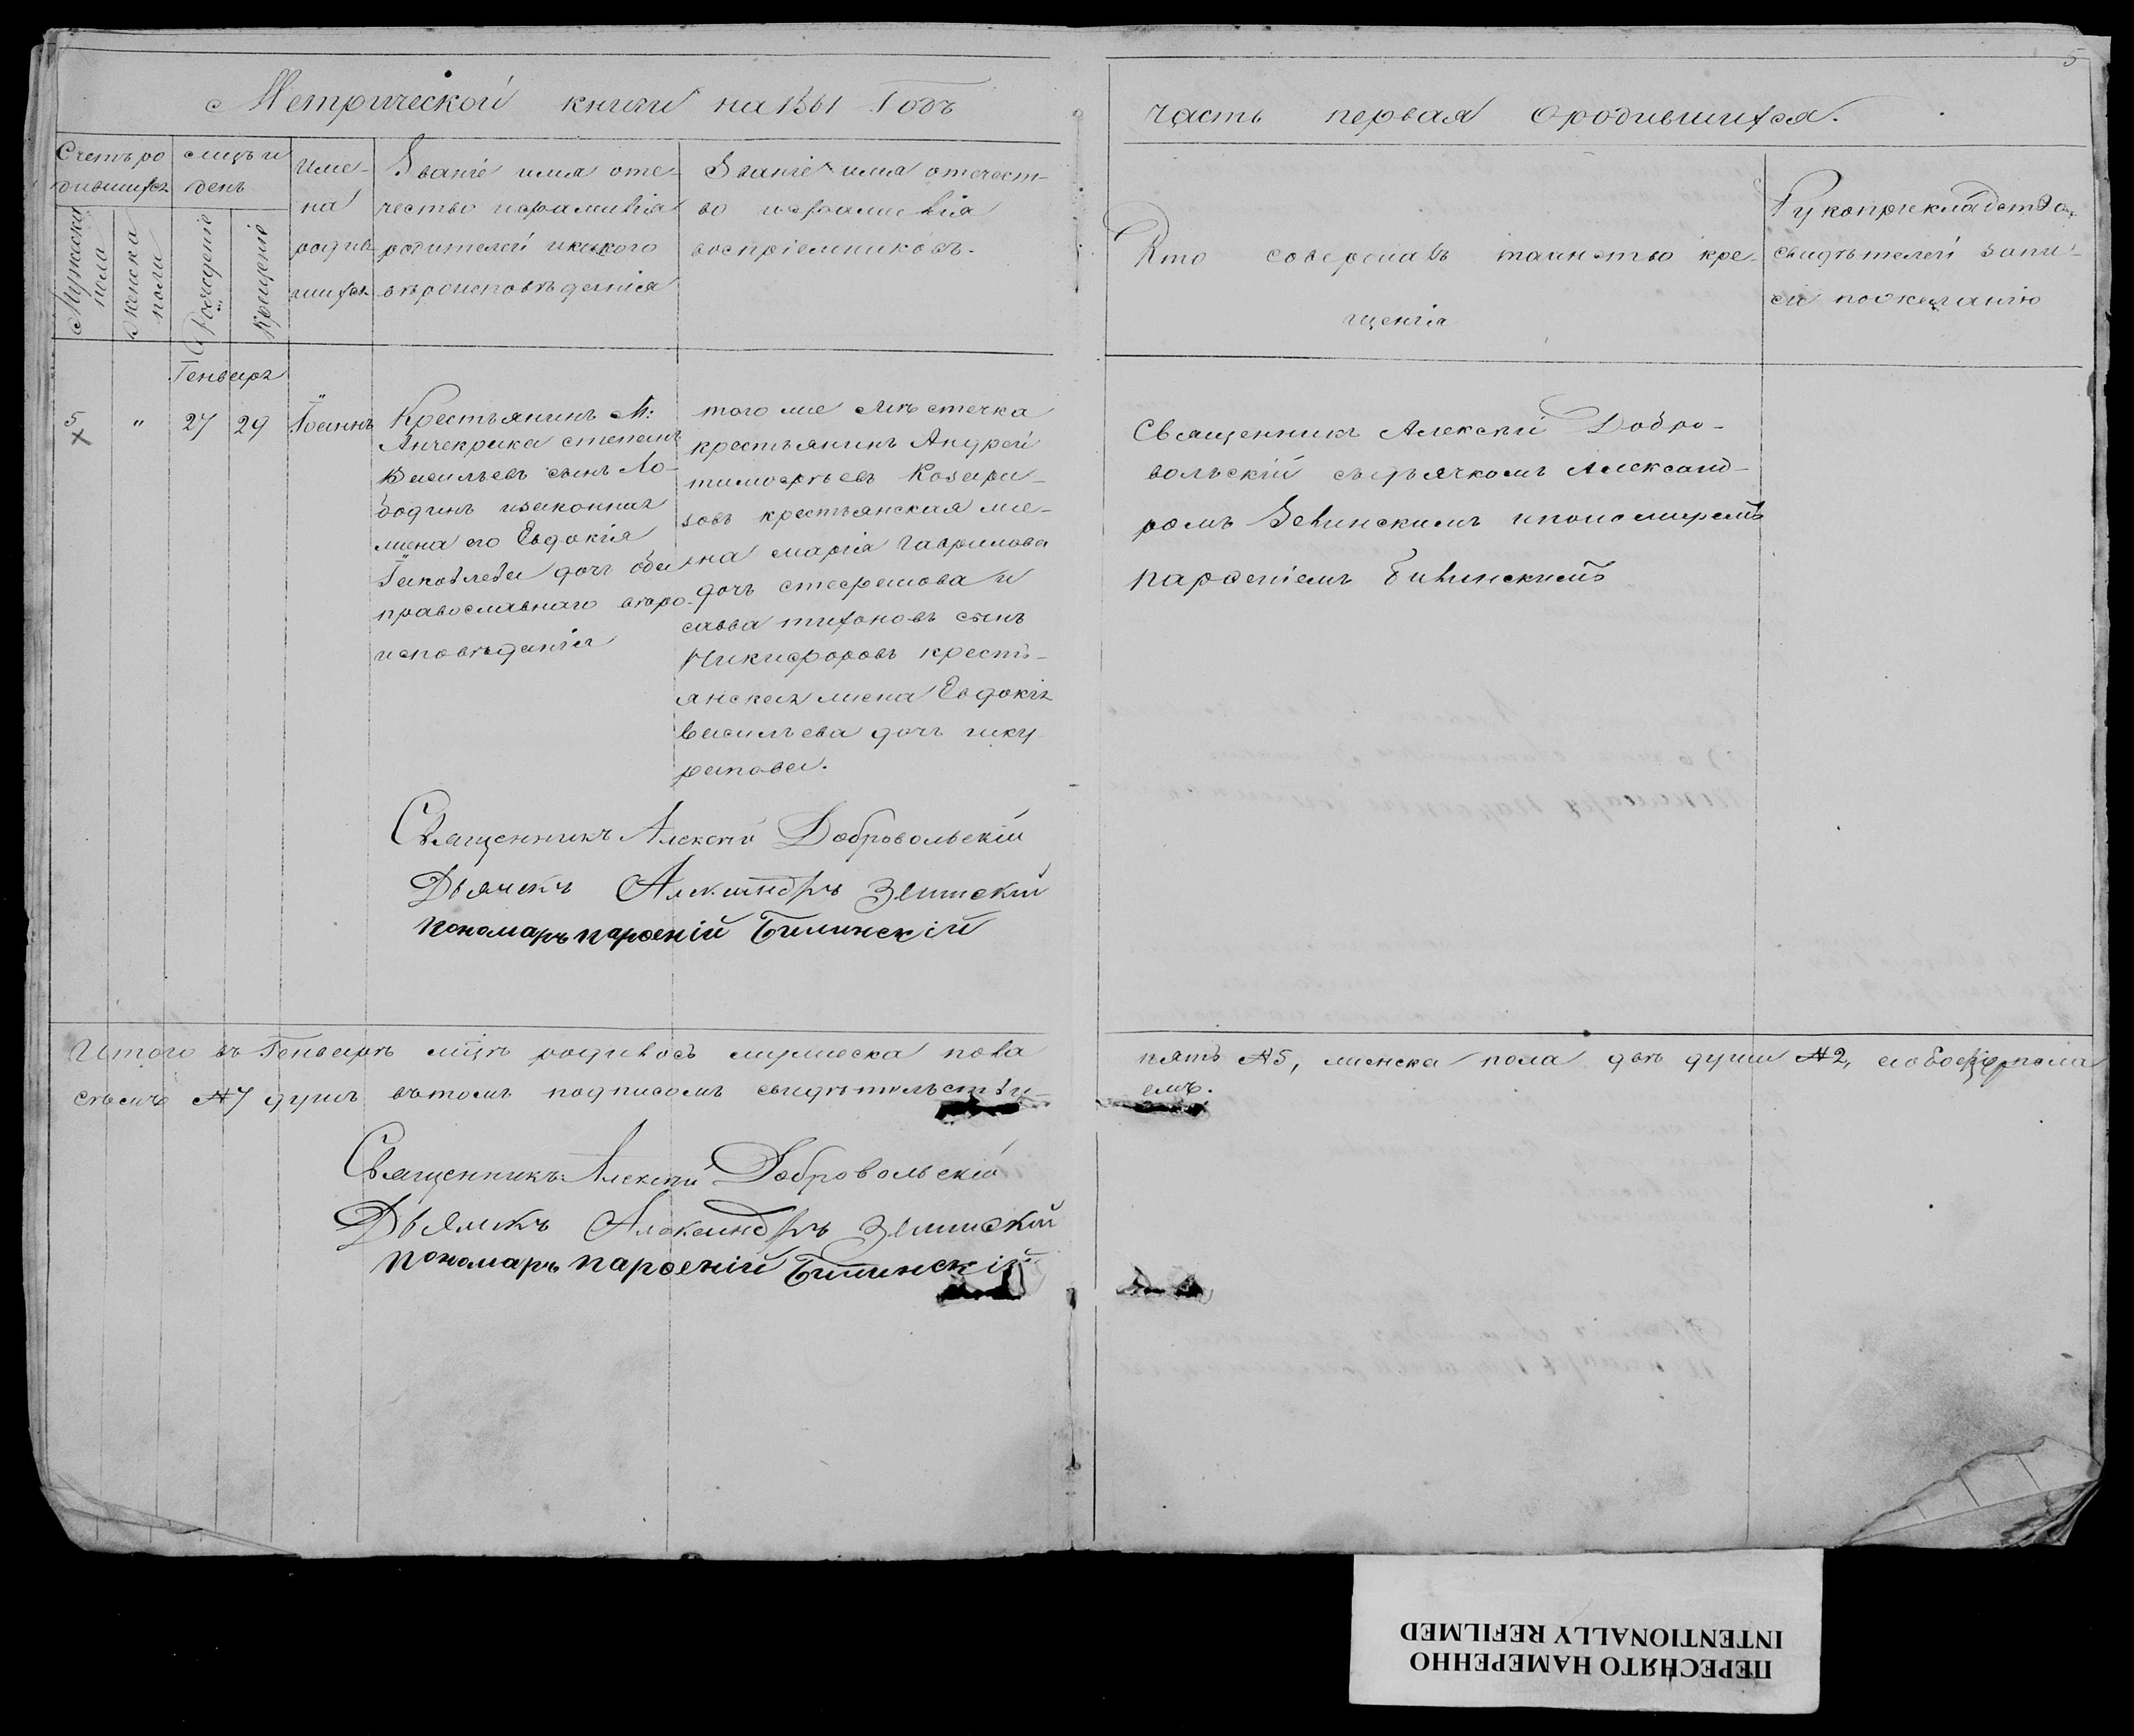 5
Метрической книги на 1861 Годъ
часть первая ородившихся.
Счетъ ро
дившихся
Мужеска
пола
женска
пола
мцъ и
день
Рожденіе
Крещеніе
Име-
на
родив
шихся
Званіе имя оте-
чество ифамилія
родителей икакого
вѣроисповѣданія
Званіе имя отечест-
во ифамилія
воспріемниковъ.
Кто совершалъ таинство кре-
щенія
Рукоприкладство
свидѣтелей запи-
си пожеланію
Генваря
5
"
27
29
Іоаннъ
Крестьянинъ М:
Анчекрака степанъ
Васильевъ сынъ Ло-
бодинъ изаконная
жена его Евдокія
Іаковлева дочь оба
православнаго вѣро-
исповѣданія
того же Мѣстечка
крестьянинъ Андрей
тимофѣевъ Козыри-
зовъ крестьянская же-
на марія Гаврилова
дочь стефанова и
савва тихоновъ сынъ
Никифоровъ кресть-
янская жена Евдокія
васильева дочь
Священникъ Алексѣй Добро-
вольскій съдьячкомъ Александ-
ромъ Зелинскимъ ипономаремъ
парѳеніемъ Билинскимъ
Священникъ Алексѣй Добровольскій
Дьячекъ Александръ Зелинскій
пономарь парѳеній Билинскій
Итого въ Генварѣ мцѣ родилось мужеска пола пять №5, женска пола двѣ души №2, а обоего пола
семь №7 душъ вътомъ подписомъ свидѣтельству-
емъ.
Священникъ Алексѣй Добровольскій
Дьячекъ Александръ Зелинскій
пономарь парѳеній Билинскій
ПЕРЕСНЯТО НАМЕРЕННО
INTENTIONALLY REFILMED